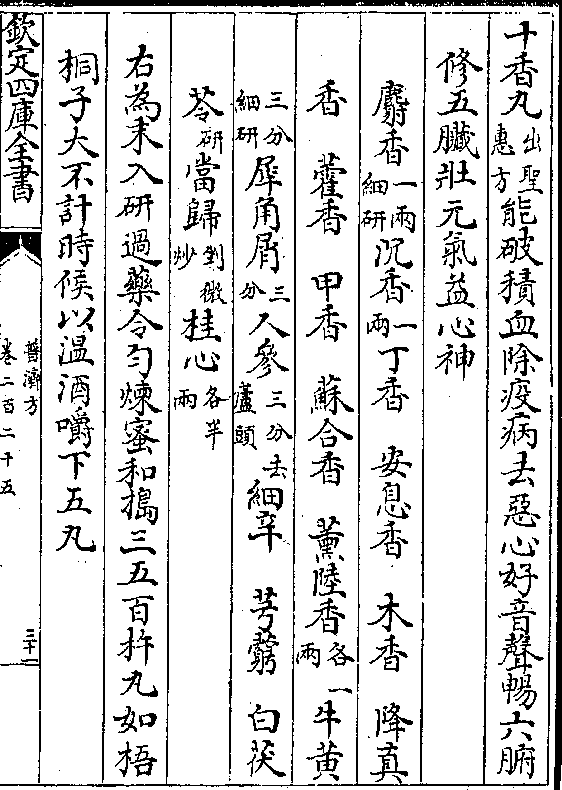 十香丸出聖惠方能破積血除疫病去惡心好音聲暢六腑
修五臟壯元氣益心神
麝香一兩細研沉香一兩丁香 安息香 木香 降真
香 藿香 甲香 蘇合香 薰陸香各一兩牛黄
三分細研犀角屑三分人參三分去蘆頭細辛 芎藭 白茯
苓研當歸剉微炒桂心各半兩
右為末入研過藥令勻煉蜜和搗三五百杵丸如梧
桐子大不計時候以温酒嚼下五丸
欽定四庫全書
普濟方
卷二百二十五
三十二